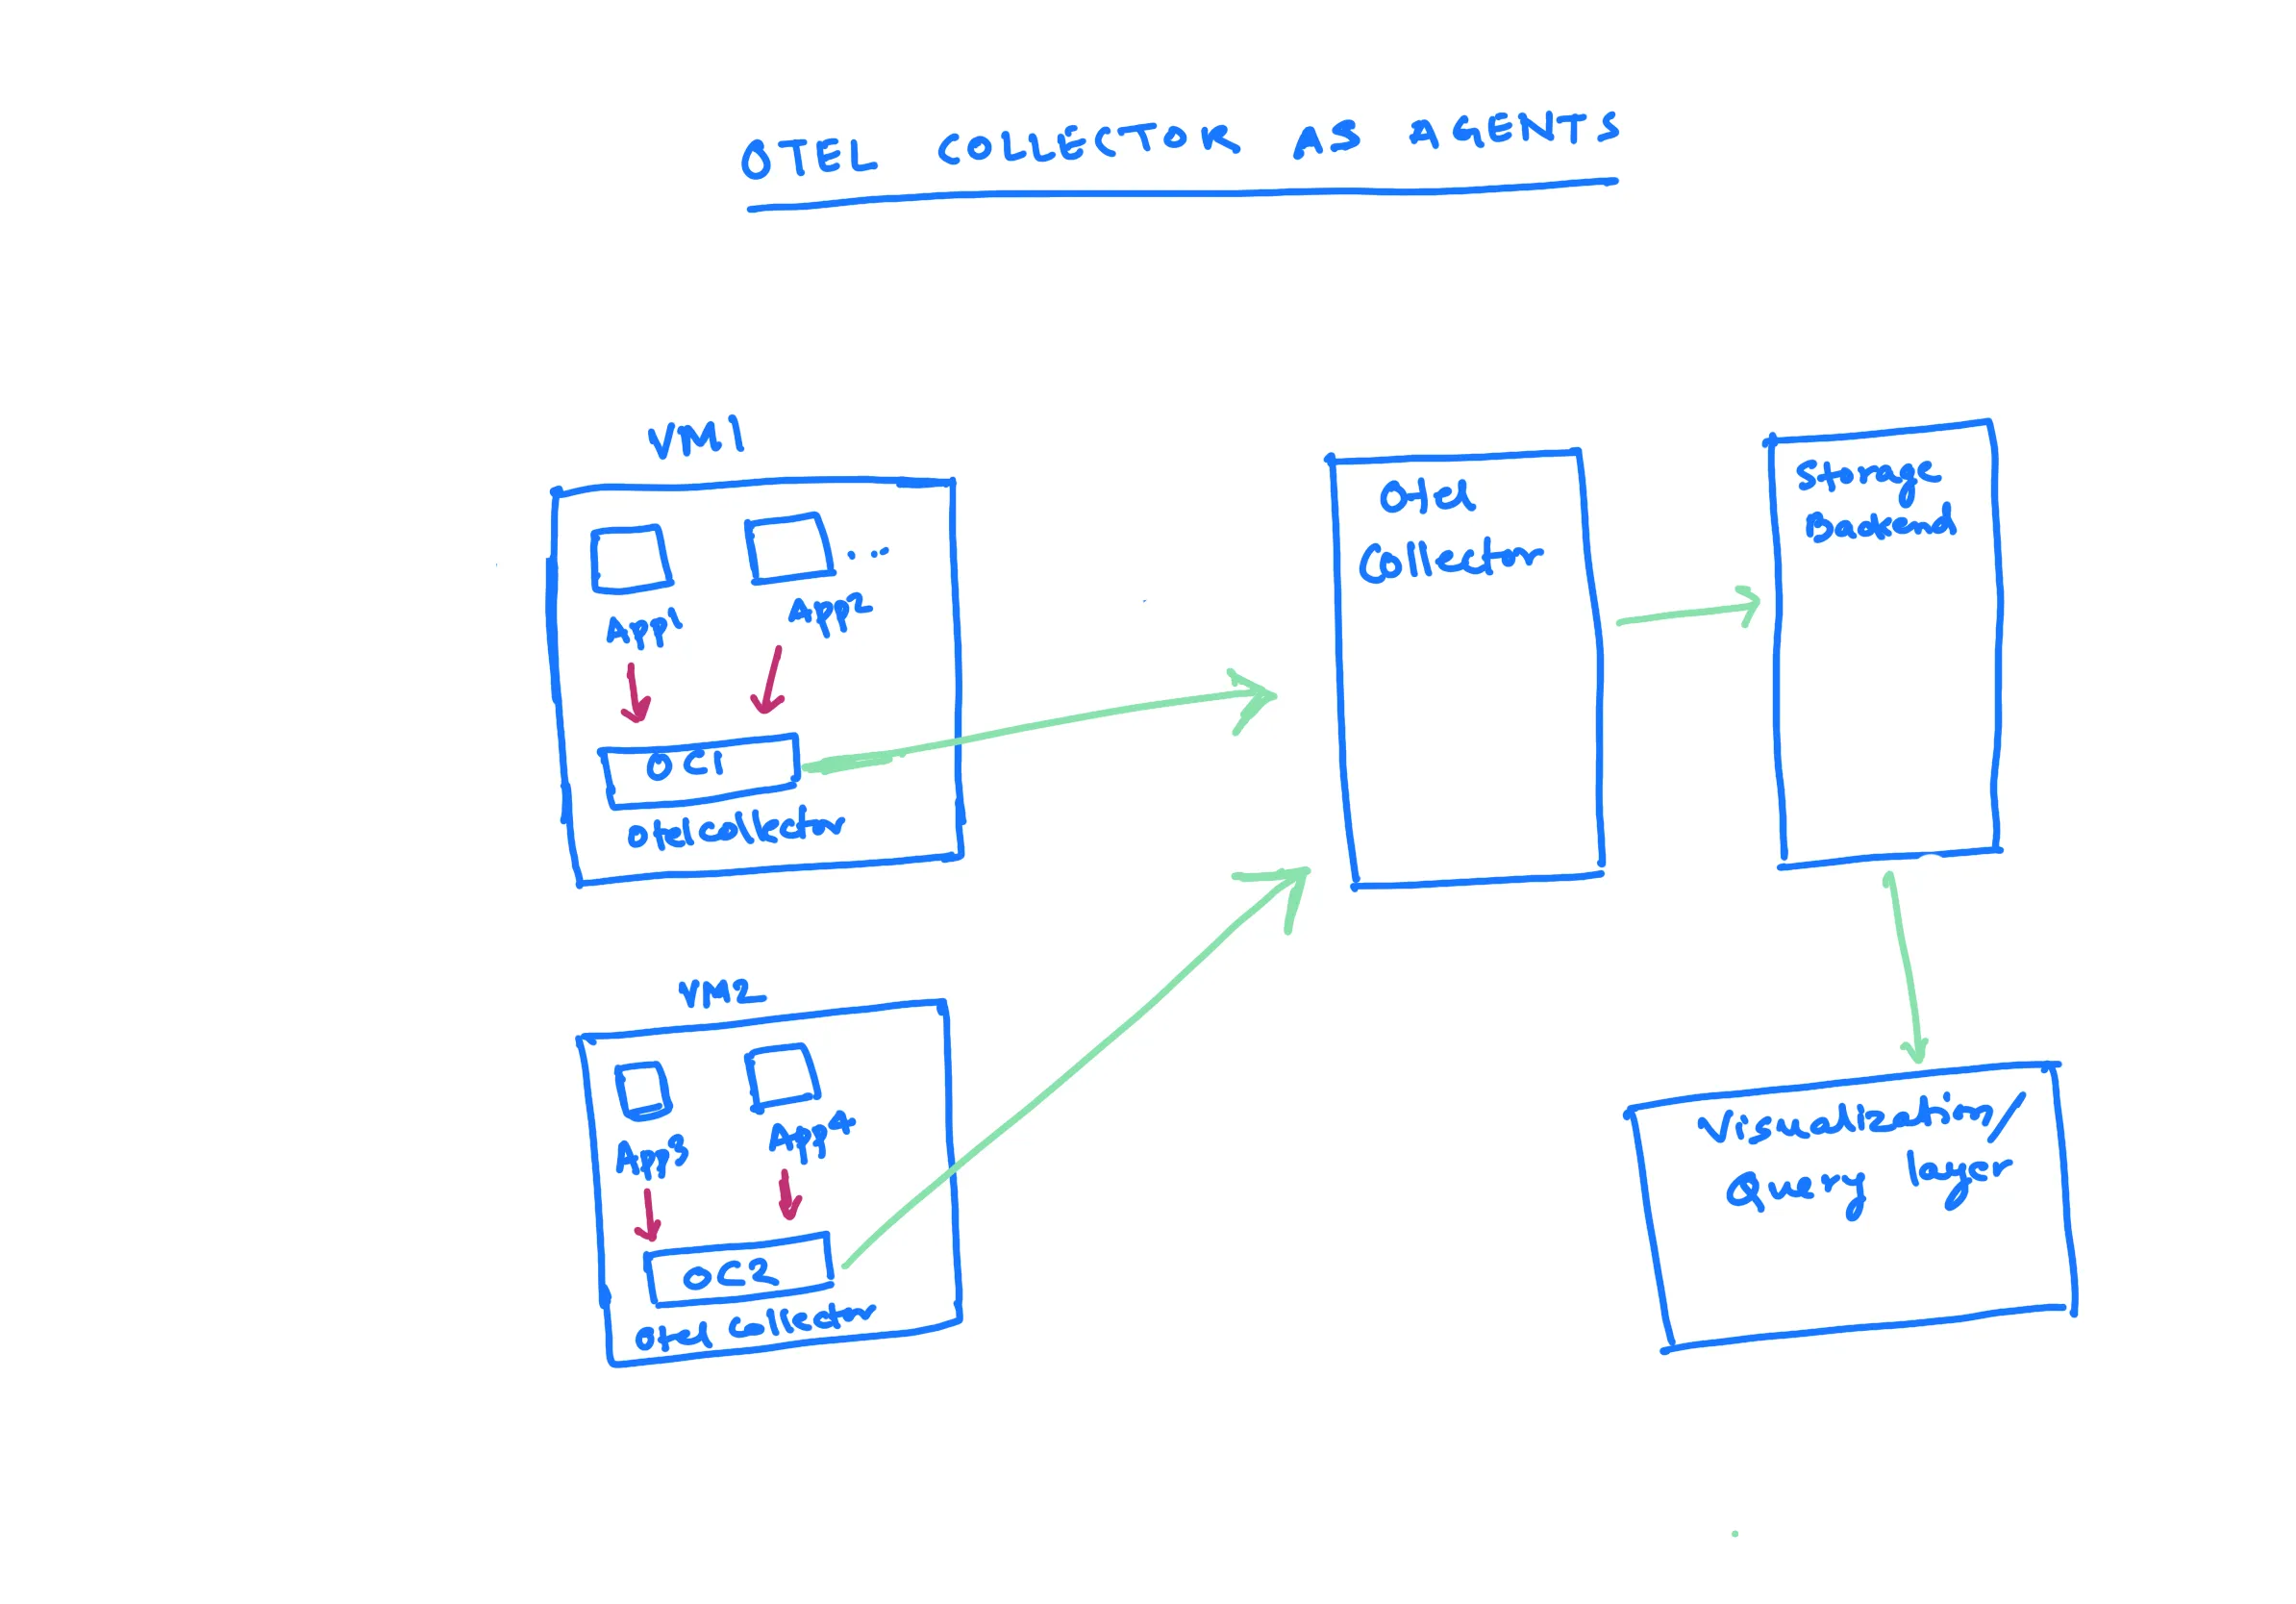 OTEL COLLECTOR AS AGENTS
VM1
App1
App2
...
OC1
otel collector
VM2
App3
App4
OC2
Otel collector
Otel
Collector
Storage
Backend
Visualization/
Query layer